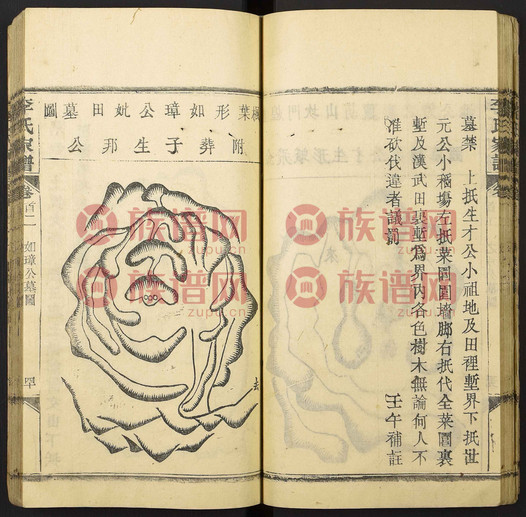 墓禁 上抵生才公小祖地及田裡塹界下抵
元公小禾場左抵菜園圍墻脚右抵代全菜園裏
塹及漢武田裏塹為界内各色樹木無論何人不
准砍伐違者議罰 壬午補註
葉形如璋公妣田墓圖
附葬子生邦公
李氏家譜
卷首二 如璋公墓圖
族谱网
zupu.cn
族谱网
zupu.cn
族谱网
zupu.cn
族谱网
zupu.cn